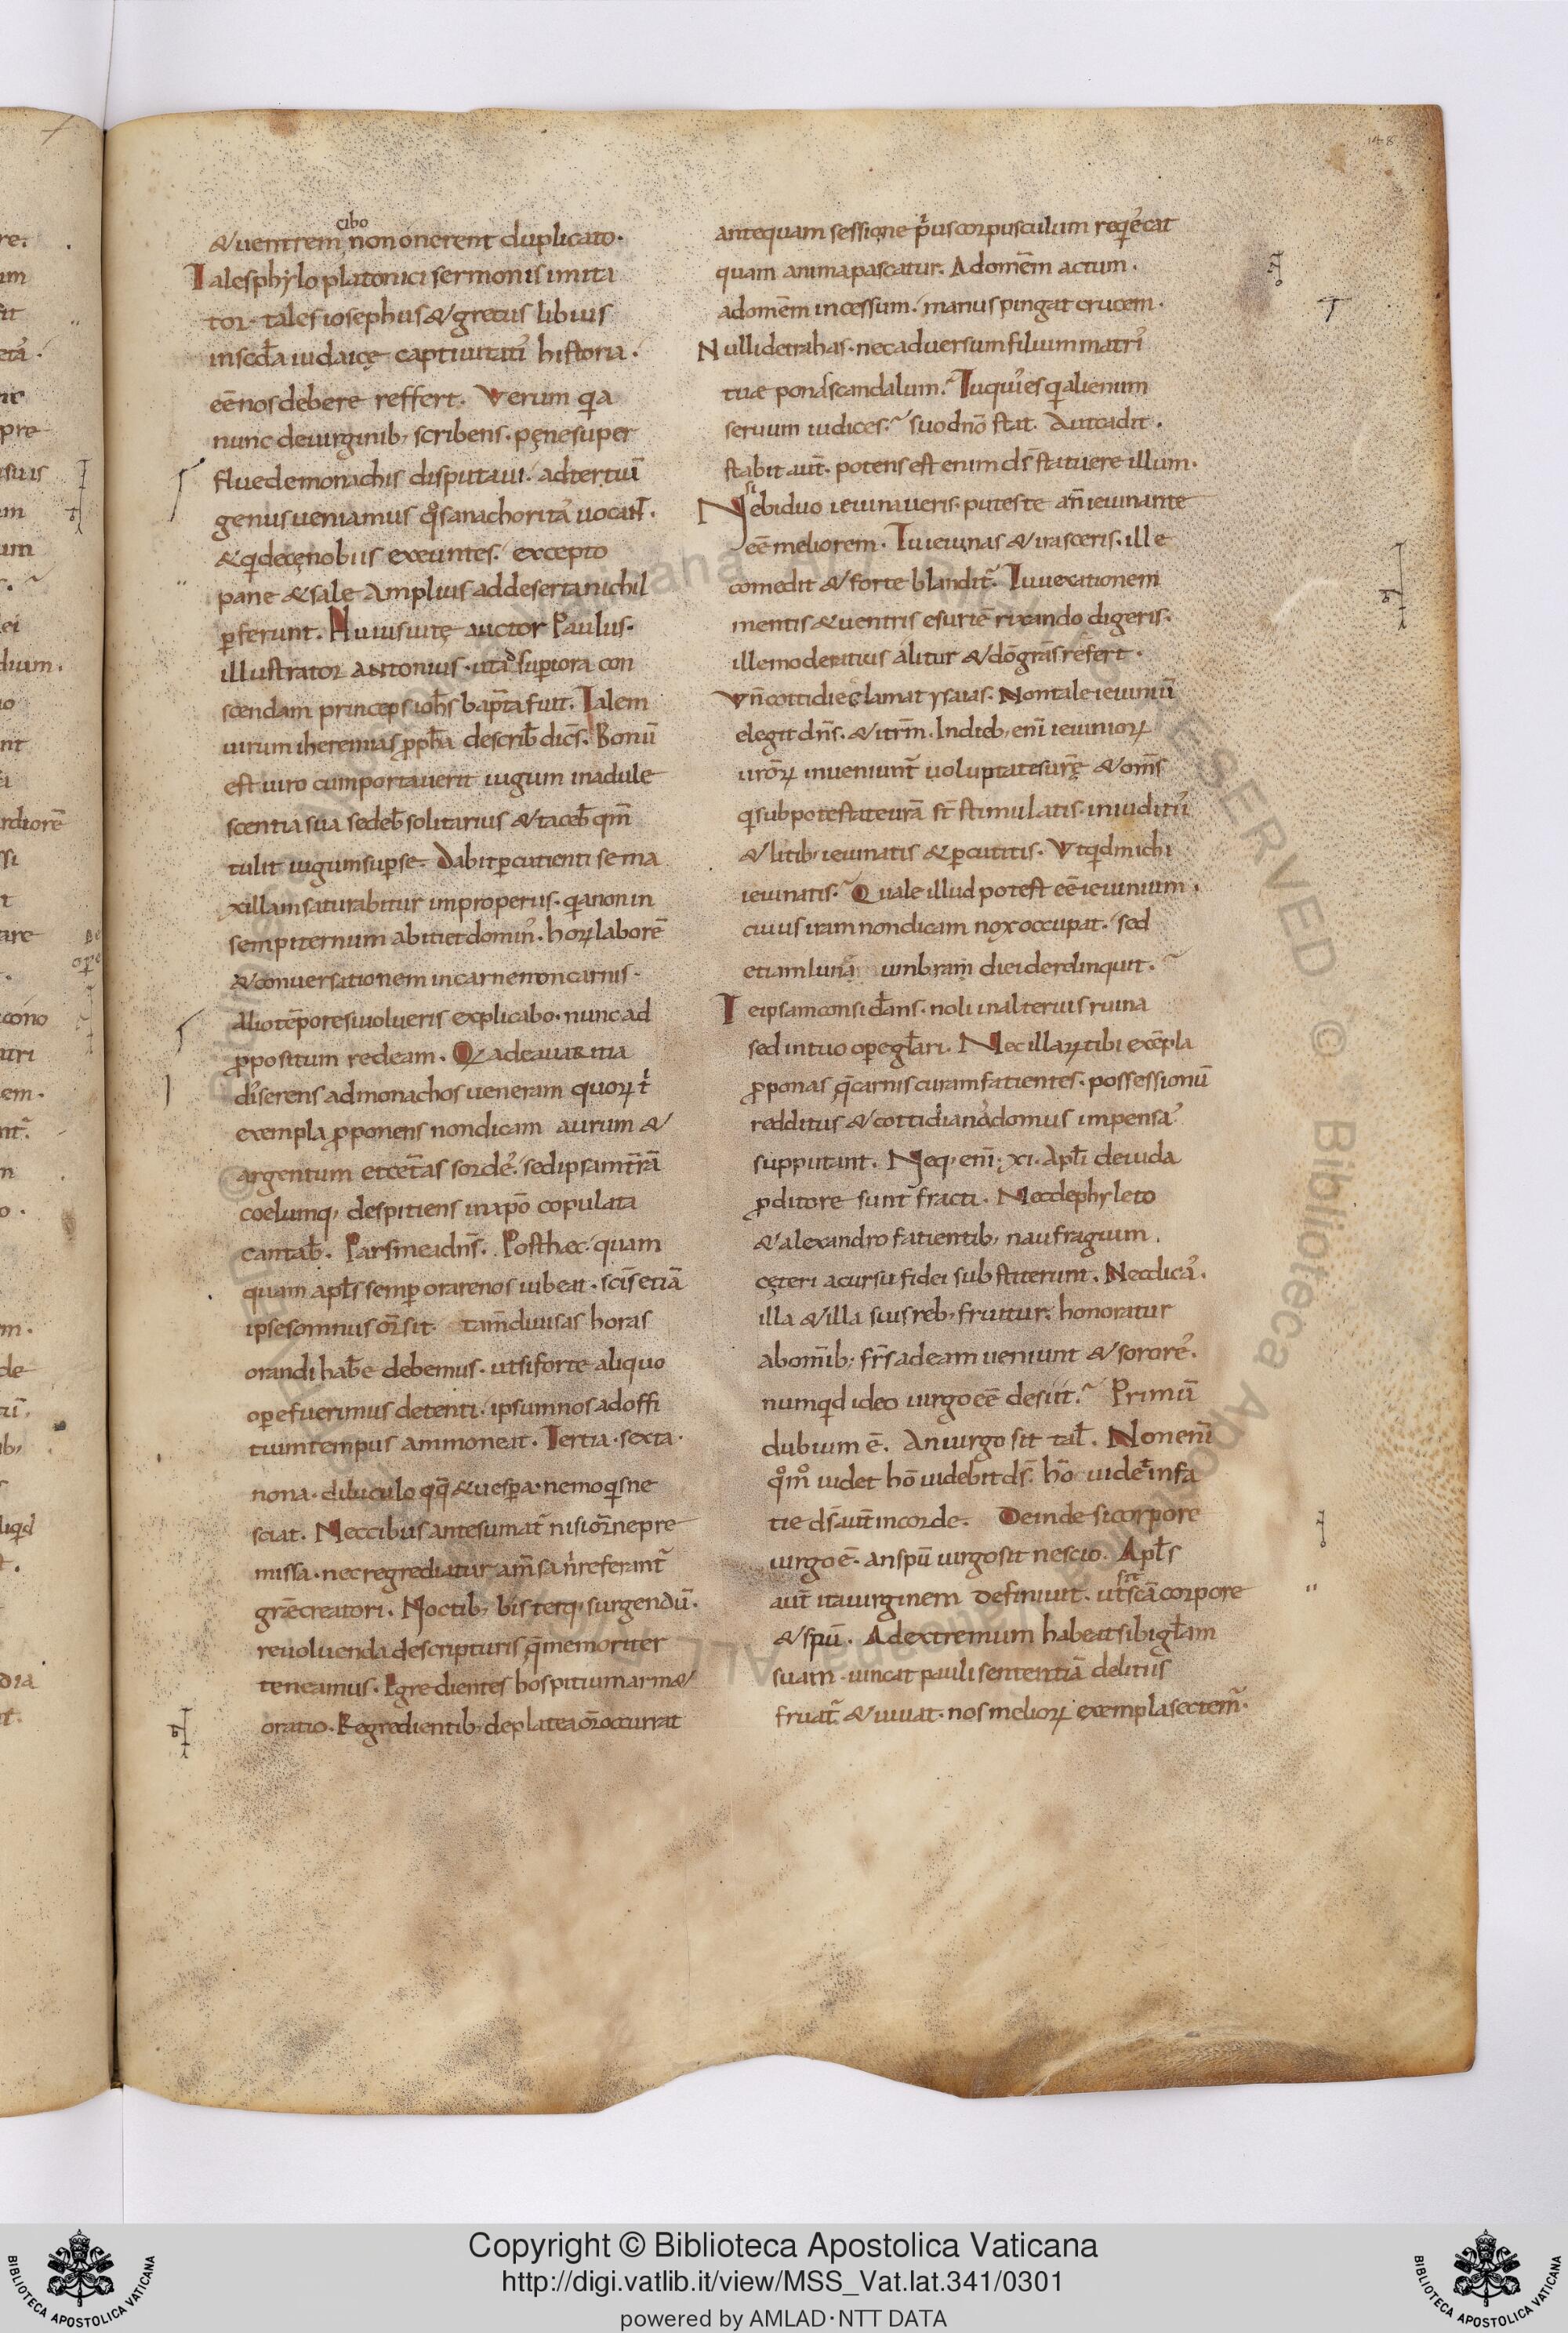 148
cibo
& uentrem non onerent duplicato.
Tales phylo platonici sermonis imita
tor. tales iosephus & gretus libius
in scd̄a iudaicę captiuitatiˀ historia.
eē nos debere reffert. Verum qa
nunc deuirginib; scribens. pęne super
flue de monachis disputaui. ad tertiū
genus ueniamus qͦs anachoritaˀ uocant̄.
& qi de cęnobiis exeuntes. excepto
pane & sale amplius ad deserta nichil
pferunt. Huius uitę auctor Paulus.
illustrator antonius. ut ad supiora con
scendam princeps ioh̄s bap̄ta fuit. Talem
uirum iheremias ppħa describ̄ dic̄s. Bonū
est uiro cum portauerit iugum in adule
scentia sua sedeb̄ solitarius & taceb̄ qm̄
tulit iugum sup se. Dabit pcutienti se ma
xillam saturabitur improperiis. qa non in
sempiternum abitiet dominˀ. hoꝝ laborē
& conuersationem in carne non carnis.
Alio tēpore si uolueris explicabo. nunc ad
ppositum redeam. Qa de auaritia
diˀserens ad monachos ueneram quoꝝ tⁱ
exempla pponens non dicam aurum &
argentum et cet̄as sordeˀ. sed ipsam t̄rā
coelumq; despitiens in xpō copulata
cantab̄. Pars mea dn̄s. Post hec. quam
quam apl̄s semp orare nos iubeat. sc̄is etiā
ipse somnus or̄ sit. tam̄ diuisas horas
orandi hab̄e debemus. ut si forte aliquo
ope fuerimus detenti. ipsum nos ad offi
tium tempus ammoneat. Tertia. sexta.
nona. diluculo qq̄ & uespa. nemo qi sne
sciat. Nec cibus ante sumat̄ nisi or̄ne pre
missa. nec regrediatur am̄sa ni referant̄
grāe creatori. Noctib; bis terq; surgendū.
reuoluenda de scripturis q̄ memoriter
teneamus. Egredientes hospitium arm&
oratio. Regredientib; de platea or̄ occurrat
antequam sessione pⁱus corpusculum reqiˀecat
quam anima pascatur. Ad omēm actum.
ad omēm incessum. manus pingat crucem.
Nulli detrahas. nec aduersum filium matriˀ
tuæ ponas scandalum. Tu quiˀ es qi alienum
seruum iudices. suo dnō stat. Aut cadit.
stabit aut̄. potens est enim ds̄ statuere illum.
si
Ne biduo ieiunaueris. putes te an̄ ieiunante
eē meliorem. Tu ieiunas & irasceris. ille
comedit & forte blandit̄. Tu uexationem
mentis & uentris esuriē rixando digeris.
ille moderatius alitur & dō grās refert.
Vn̄ cottidie clamat ysaias. Non tale ieiuniū
elegit dn̄s. & itr̄m. In dieb; eni̅ ieiunioꝝ
ur̄oꝝ inueniunt̄ uoluptates ur̄ę & om̄s
qi sub potestate ur̄ā st̄ stimulatis. in iuditiiˀ
& litib; ieiunatis & pcutitis. Vt qid michi
ieiunatis. Quale illud potest eē ieiunium.
cuius iram non dicam nox occupat. sed
etiam lunā umbram diei derelinquit.
Te ipsam consid̄ans. noli in alterius ruina
sed in tuo ope gl̄ari. Nec illaꝝ tibi exēpla
pponas q̄ carnis curam fatientes. possessionū
redditus & cottidianaˀ domus impensaˀ
supputant. Neq; eni̅. xi. Apl̄i de iuda
pditore sunt fracti. Nec de phyleto
& alexandro fatientib; naufragium.
cęteri a cursu fidei substiterunt. Nec dicaˀ.
illa & illa suis reb; fruitur. honoratur
ab om̄ib; fr̄s ad eam ueniunt & sororeˀ.
numqid ideo uirgo eē desiit. Primū
dubium ē. An uirgo sit tal̄. Non eni̅
qͦmͦ uidet hō uidebit ds̄. hō uidet in fa
tie ds̄ aut̄ in corde. Deinde si corpore
uirgo ē. an spū uirgo sit nescio. Apl̄s
sit
aut̄ ita uirginem definiuit. ut sc̄a corpore
& spū. Ad extremum habeat sibi gl̄am
suam. uincat pauli sententiā delitiis
fruat̄ & uiuat. nos melioꝝ exempla sectem̄.
Copyright © Biblioteca Apostolica Vaticana
http://digi.vatlib.it/view/MSS_Vat.lat.341/0301
powered by AMLAD·NTT DATA
BIBLIOTECA APOSTOLICA VATICANA
BIBLIOTECA APOSTOLICA VATICANA